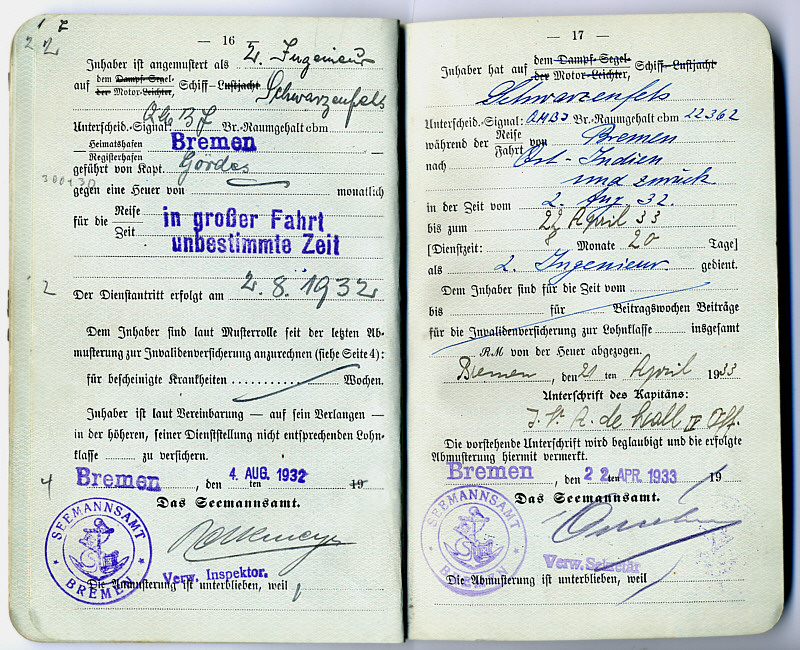 1 2
2 2
— 16 —
Inhaber ist angemustert als 2. Ingenieur
auf dem Dampf-Segel- Schiff-Lustjacht
der Motor-Leichter,
Schwarzenfels
Unterscheid.-Signal: Br.-Raumgehalt cbm
Heimatshafen Bremen
Registerhafen
geführt von Kapt. Gördes
gegen eine Heuer von monatlich
für die Reise in großer Fahrt
Zeit unbestimmte Zeit
2
Der Dienstantritt erfolgt am 2.8.1932
Dem Inhaber sind laut Musterrolle seit der letzten Ab-
musterung zur Invalidenversicherung anzurechnen (siehe Seite 4):
für bescheinigte Krankheiten .......... Wochen.
Inhaber ist laut Vereinbarung — auf sein Verlangen —
in der höheren, seiner Dienststellung nicht entsprechenden Lohn-
klasse zu versichern.
4
Bremen, den 4. AUG. 1932 ten 19
Das Seemannsamt.
SEEMANNSAMT
BREMEN
Verw. Inspektor.
Die Abmusterung ist unterblieben, weil
— 17 —
Inhaber hat auf dem Dampf-Segel- Schiff-Lustjacht
der Motor-Leichter,
Schwarzenfels
Unterscheid.-Signal: QHBJ Br.-Raumgehalt cbm 22362
während der Reise von Bremen
Fahrt
nach Ost-Indien
und zurück
in der Zeit vom 2. Aug. 32.
bis zum April 33
[Dienstzeit: 8 Monate 20 Tage]
als 2. Ingenieur. gedient.
Dem Inhaber sind für die Zeit vom
bis für Beitragswochen Beiträge
für die Invalidenversicherung zur Lohnklasse insgesamt
RM von der Heuer abgezogen.
Bremen, den 21 ten April 1933
Unterschrift des Kapitäns:
de Wall IV Off.
Die vorstehende Unterschrift wird beglaubigt und die erfolgte
Abmusterung hiermit vermerkt.
Bremen, den 22. APR. 1933 ten 19
Das Seemannsamt.
SEEMANNSAMT
BREMEN
Verw. Sekretär
Die Abmusterung ist unterblieben, weil